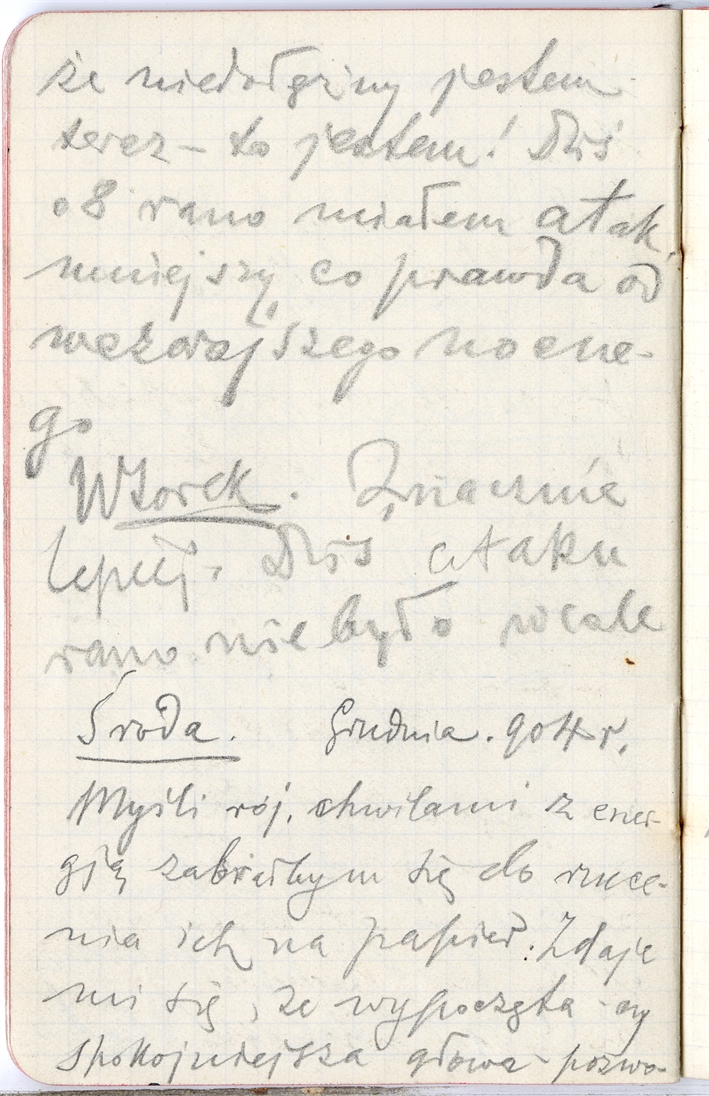 że niedołężny jestem
teraz – to jestem! Dziś
o 8 rano miałem atak,
mniejszy co prawda od
wczorajszego nocne-
go
Wtorek. Znacznie
lepiej. Dziś ataku
rano nie było wcale
Środa. Grudnia. 904 r.
Myśli rój. chwilami z ener-
gją zabrałbym się do rzuce-
nia ich na papier. Zdaje
mi się, że wypoczęta czy
spokojniejsza głowa pozwo-